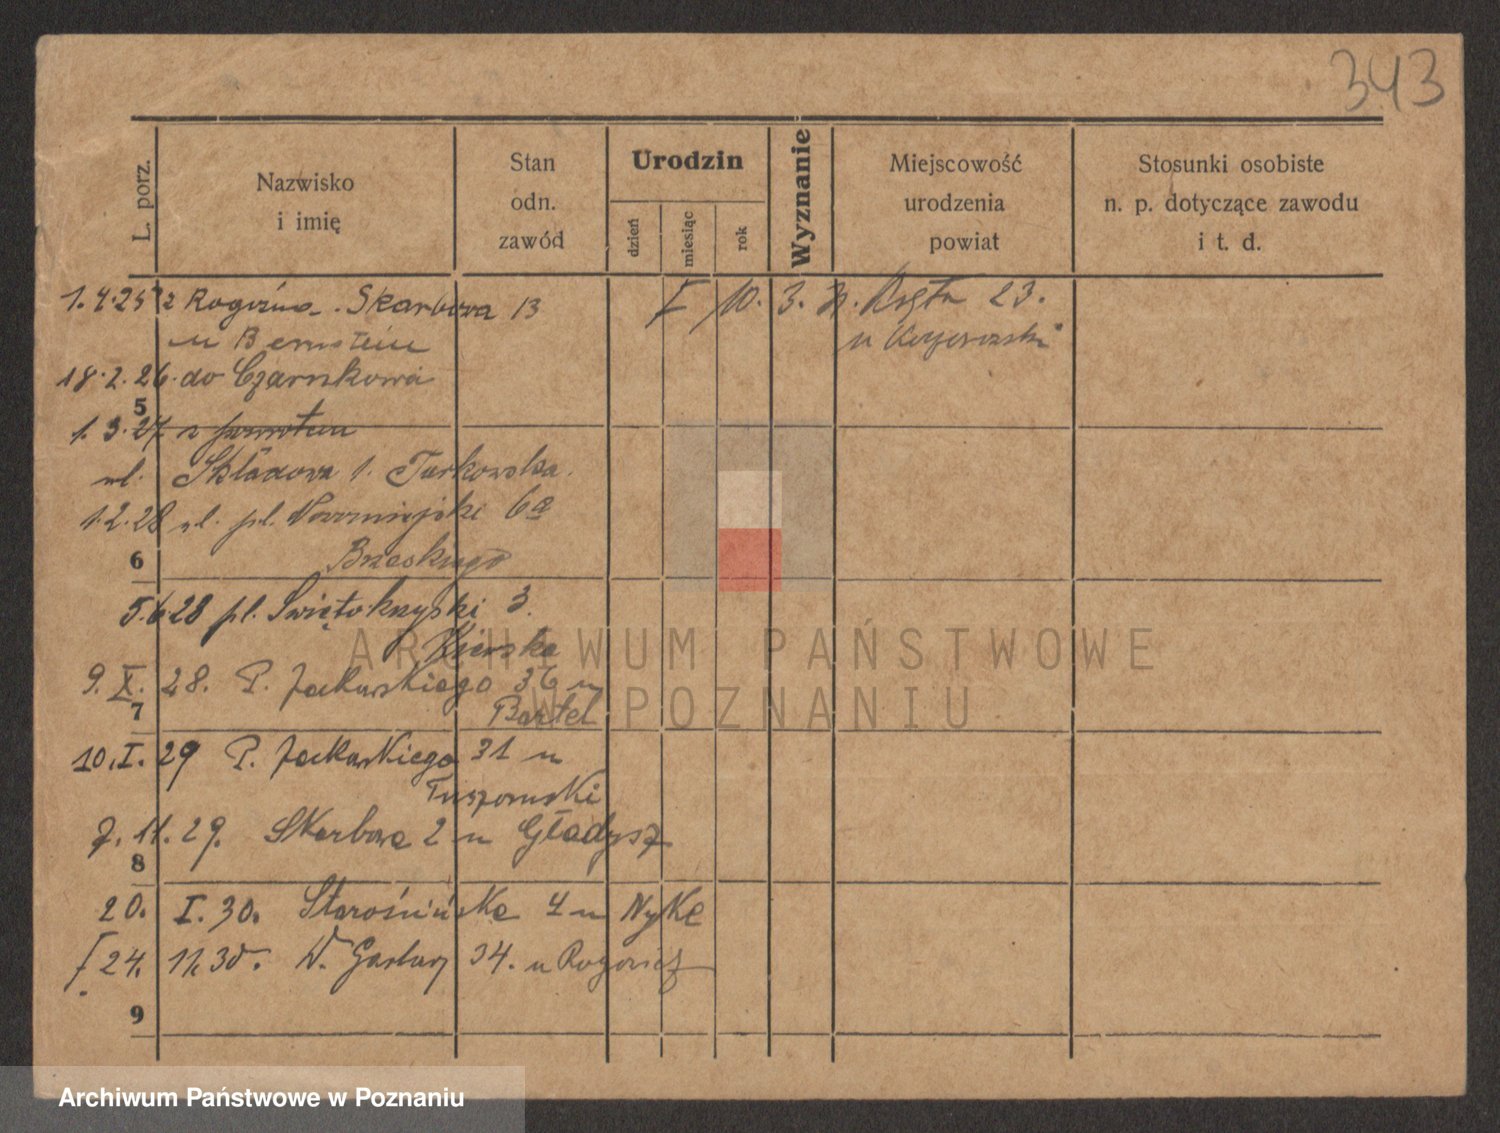 343
L. porz.
Nazwisko
i imię
Stan
odn.
zawód
Urodzin
dzień
miesiąc
rok
Wyznanie
Miejscowość
urodzenia
powiat
Stosunki osobiste
n. p. dotyczące zawodu
i t. d.
1.4.25 z Rogoźna. Skarbowa 13
u Bernstein
I 10. 3.
23.
18.2.26. do Czarnkowa
5
1.3.27 z powrotem
ul. Składowa 1. Turkowska.
1.2.28 ul. pl. Nowomiejski 6a
Brzeskiego
6
5.6.28 pl. Świętokrzyski 3.
9. X. 28. P. Jackowskiego 36 u
Bartel
7
10. I. 29 P. Jackowskiego 31 u
7. 11. 29. Skarbowa 2 u Gładysz
8
20. I. 30. Starościńska 4 u Nyke
24. 11. 30. W. Garbary 34. u Rogowicz
9
ARCHIWUM PAŃSTWOWE
W POZNANIU
Archiwum Państwowe w Poznaniu